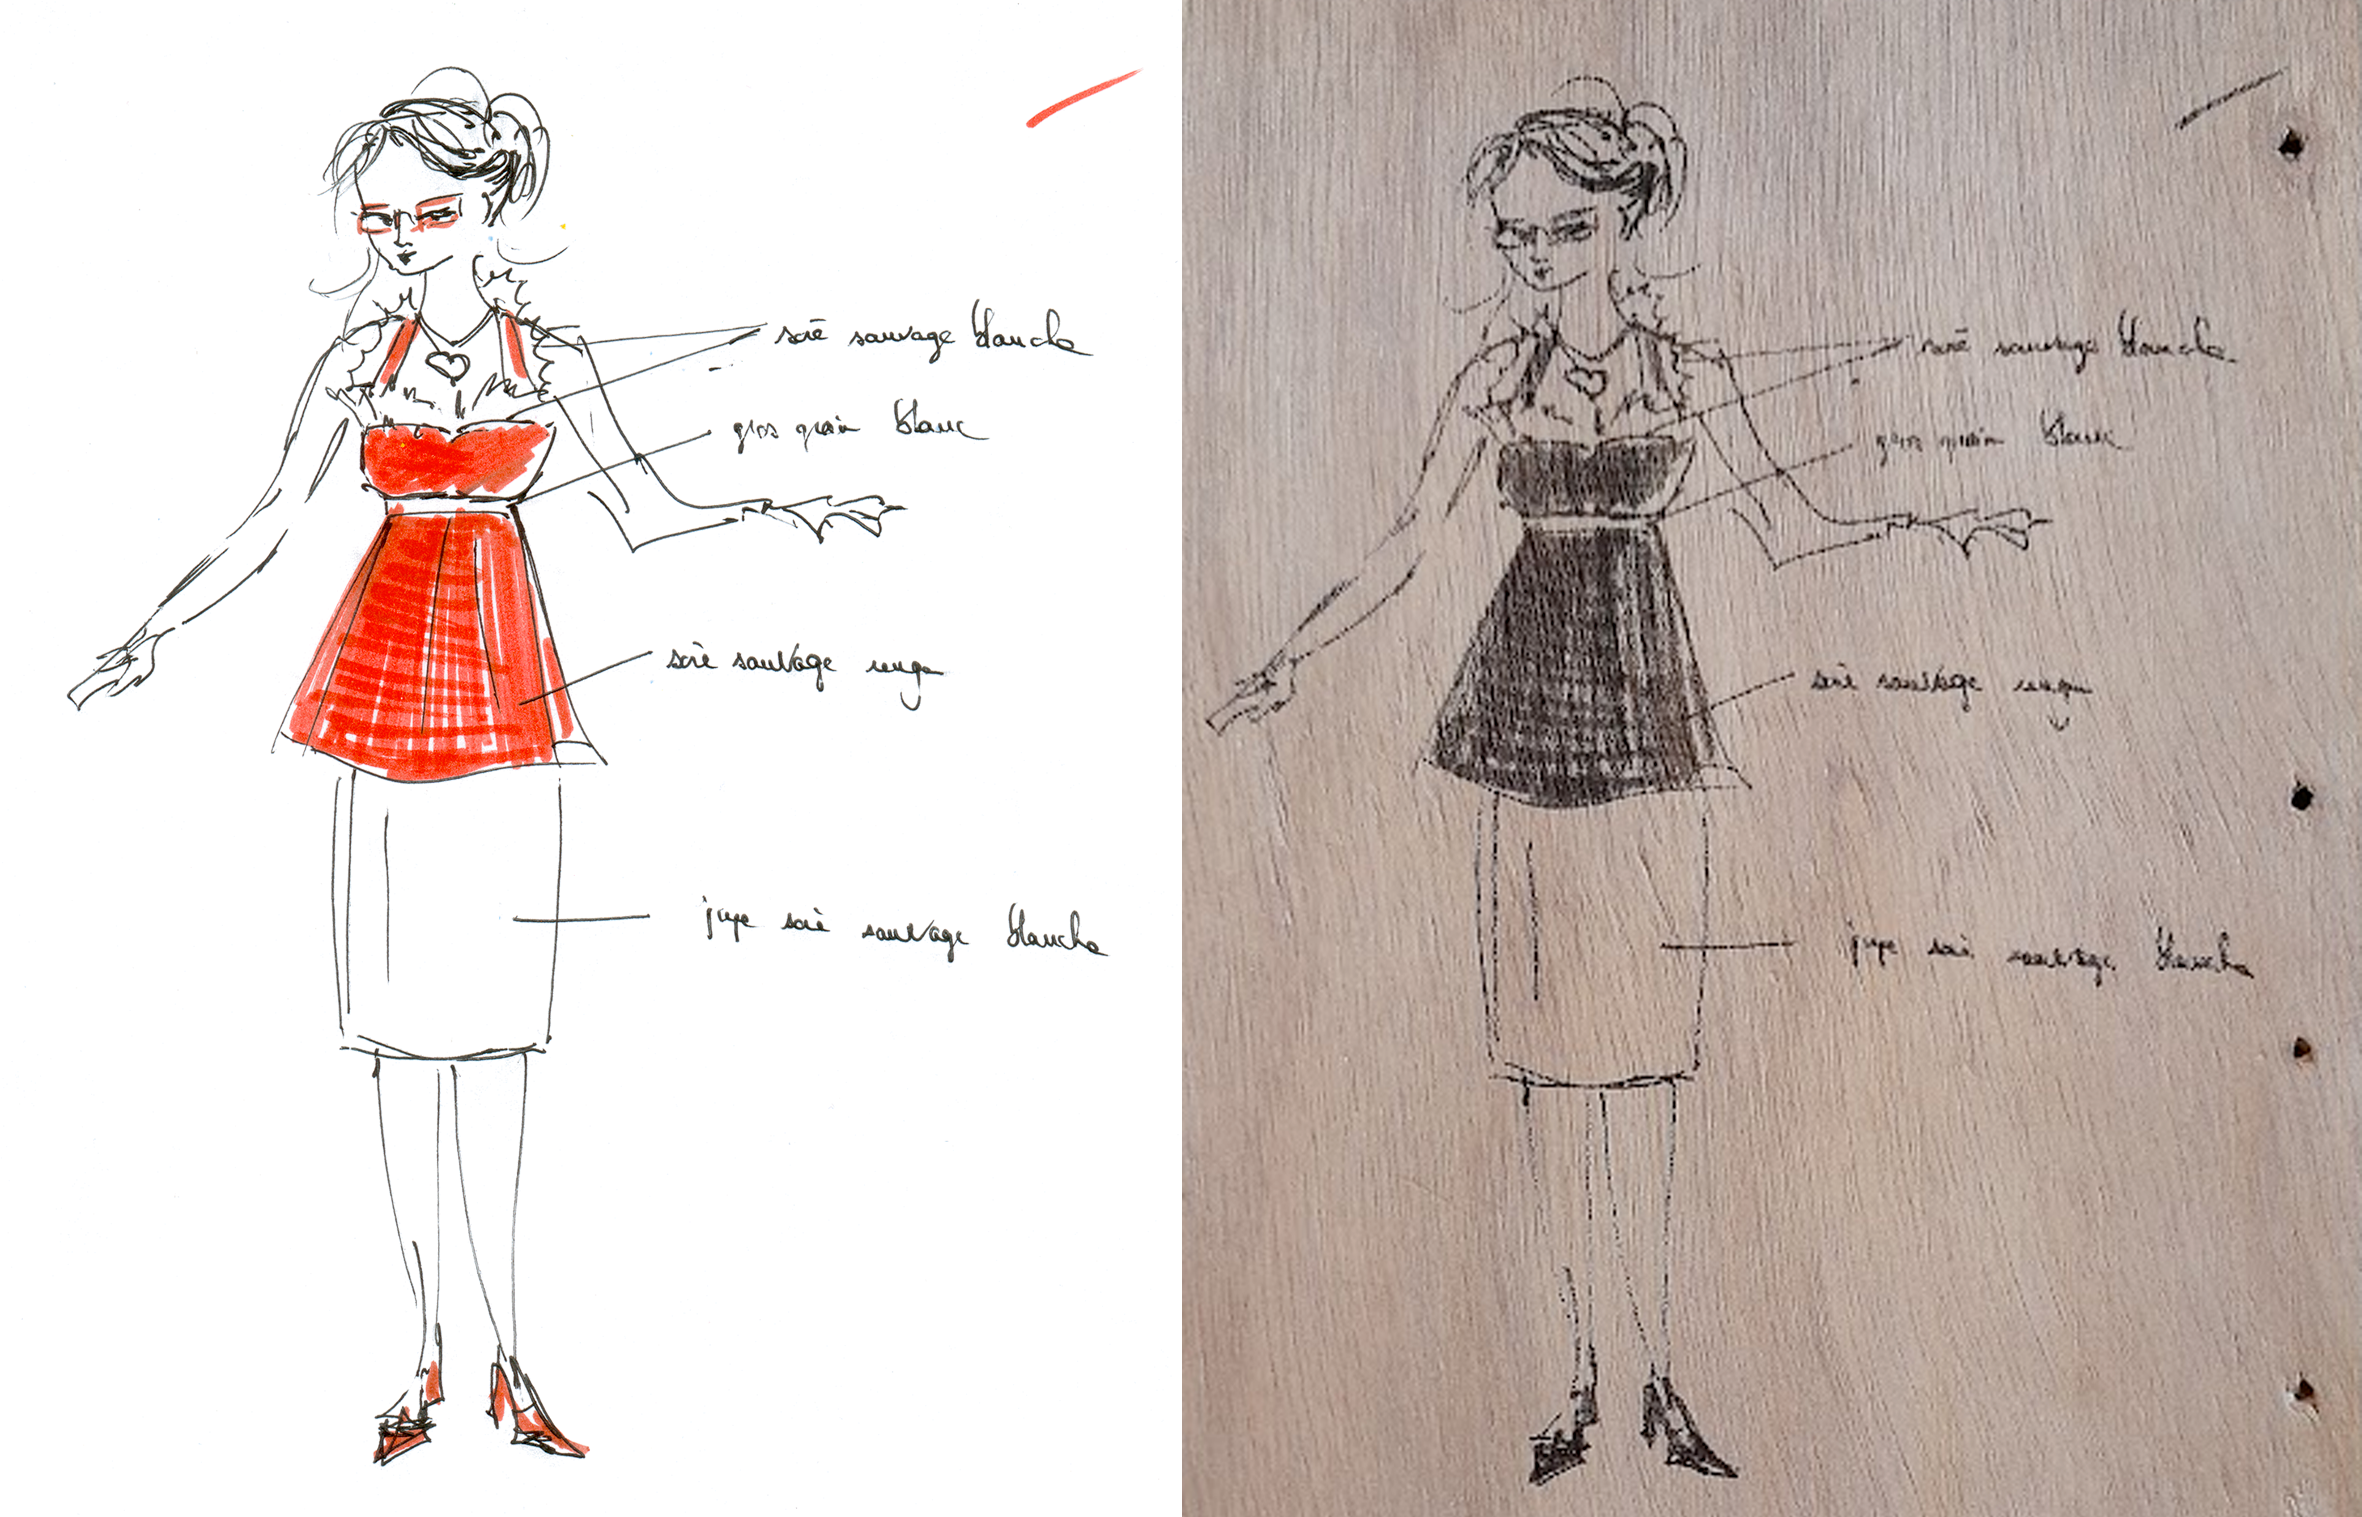 soie sauvage blanche
gros grain blanc
soie sauvage rouge
jupe soie sauvage blanche
soie sauvage blanche
gros grain blanc
soie sauvage rouge
jupe soie sauvage blanche